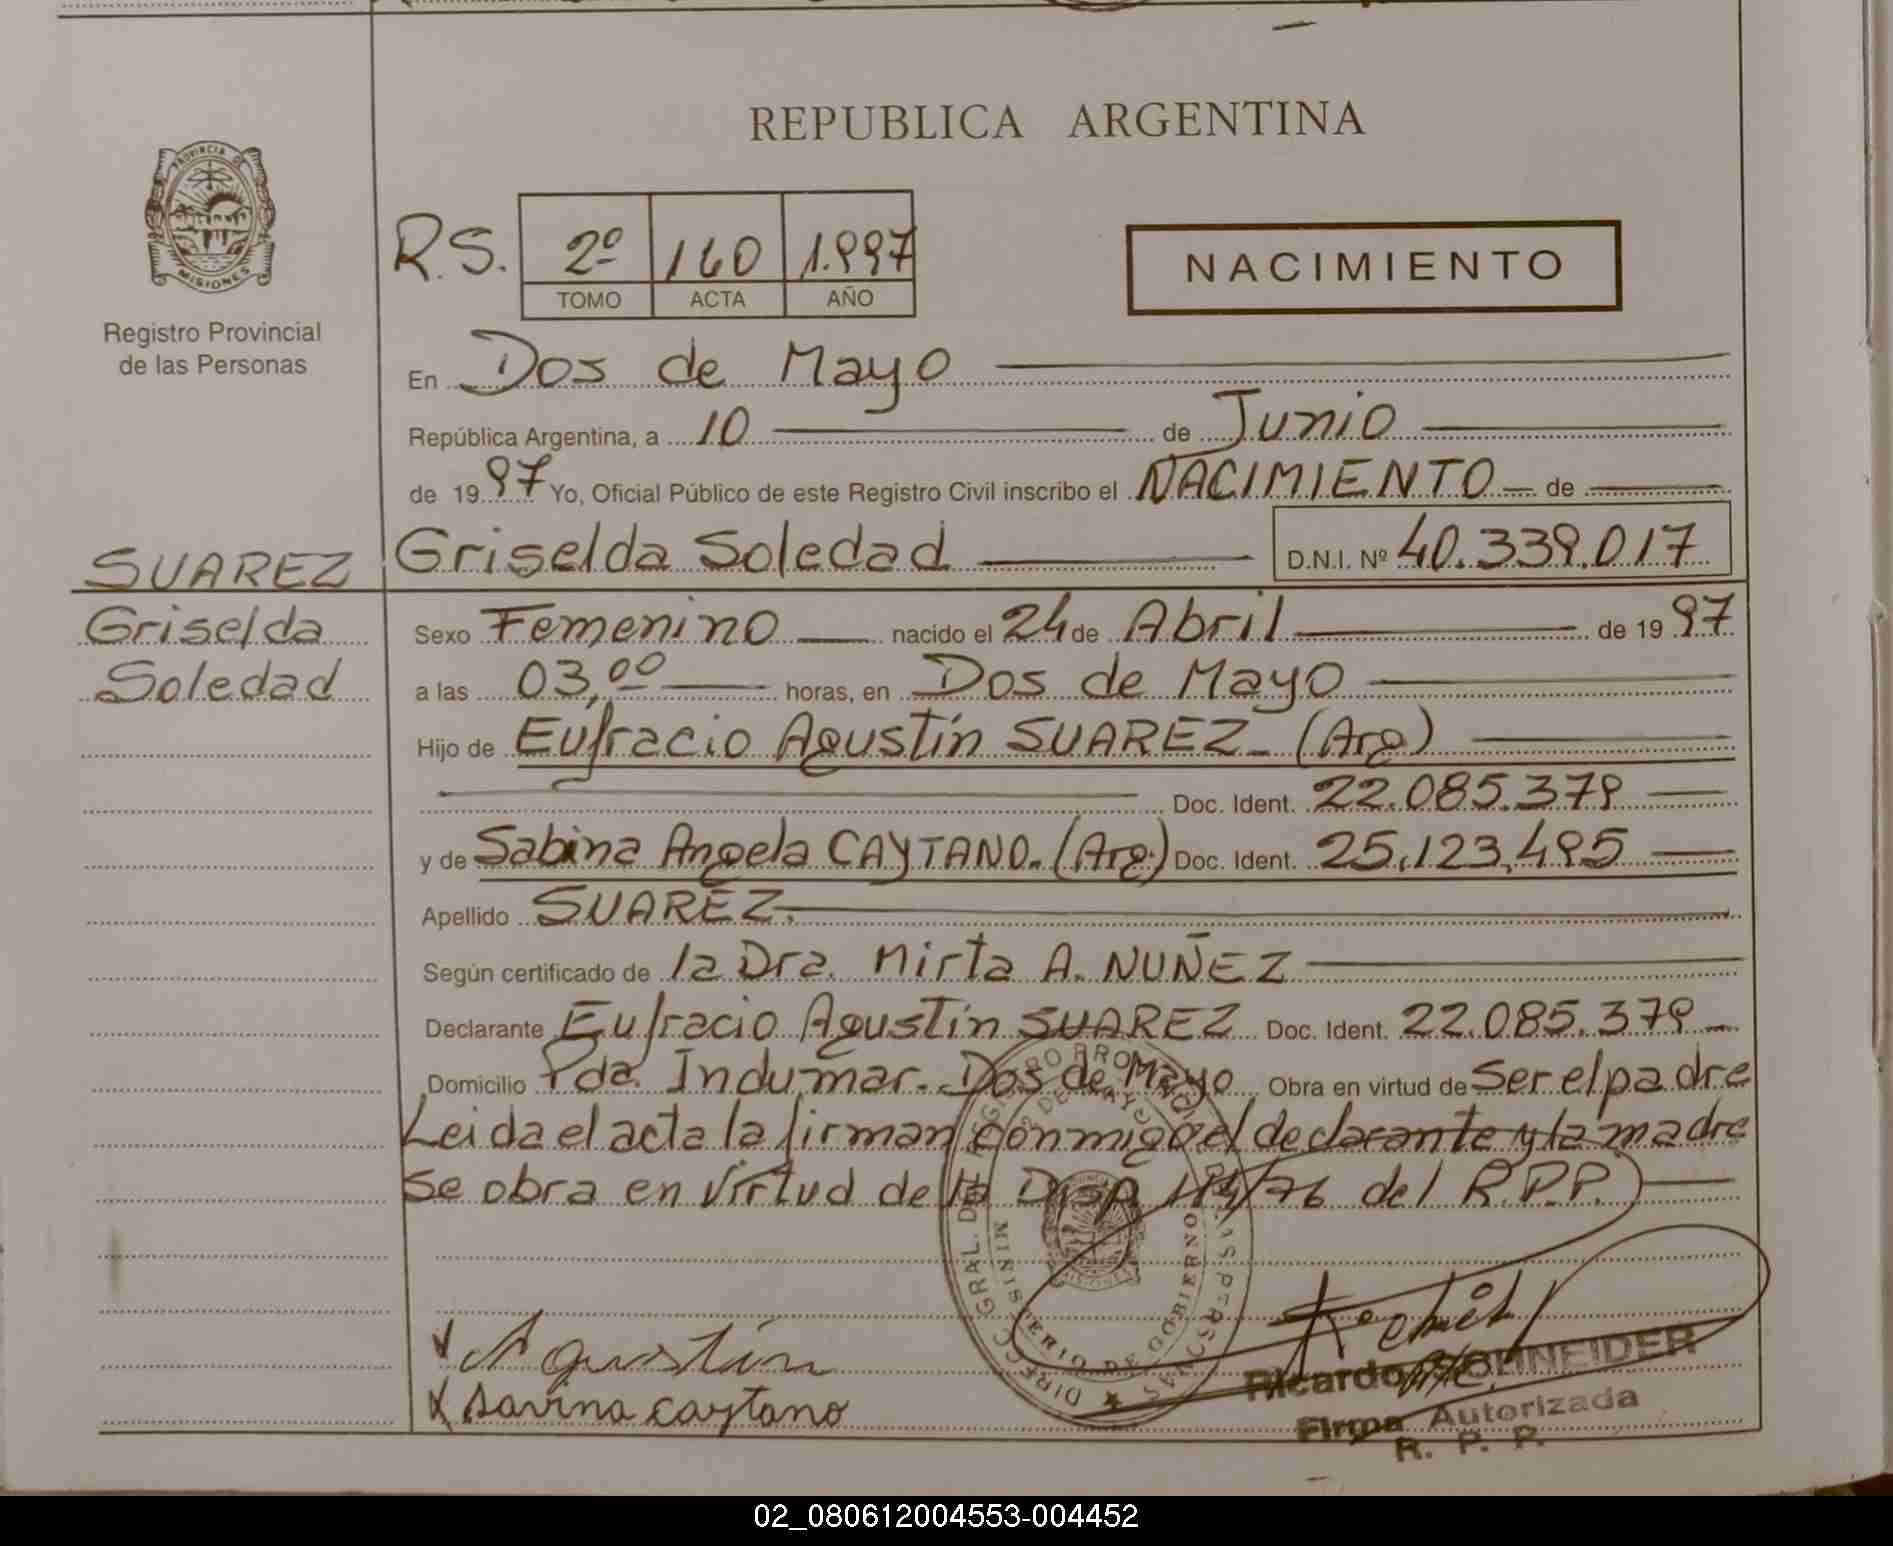 REPUBLICA ARGENTINA
PROVINCIA DE
MISIONES
Registro Provincial
de las Personas
R.S. 2º 160 1.997
TOMO ACTA AÑO
NACIMIENTO
En Dos de Mayo
República Argentina, a 10 de Junio
de 19 97 Yo, Oficial Público de este Registro Civil inscribo el NACIMIENTO de
Griselda Soledad D.N.I. Nº 40.339.017
SUAREZ
Griselda
Soledad
Sexo Femenino nacido el 24 de Abril de 19 97
a las 03,00 horas, en Dos de Mayo
Hijo de Eufracio Agustín SUAREZ (Arg)
Doc. Ident. 22.085.379
y de Sabina Angela CAYTANO. (Arg.) Doc. Ident. 25.123.495
Apellido SUAREZ.
Según certificado de la Dra. Mirta A. NUÑEZ
Declarante Eufracio Agustín SUAREZ Doc. Ident. 22.085.379
Domicilio Pda. Indumar. Dos de Mayo Obra en virtud de Ser el padre
Leida el acta la firman conmigo el declarante y la madre
Se obra en virtud de la Disp /76 del R.P.P.
DIRECC. GRAL. DEL REGISTRO PROVINCIAL DE LAS PERSONAS
DOS DE MAYO
MINISTERIO DE GOBIERNO
Agustín
Savina caytano
Ricardo SCHNEIDER
Firma Autorizada
R. P. P.
02_080612004553-004452